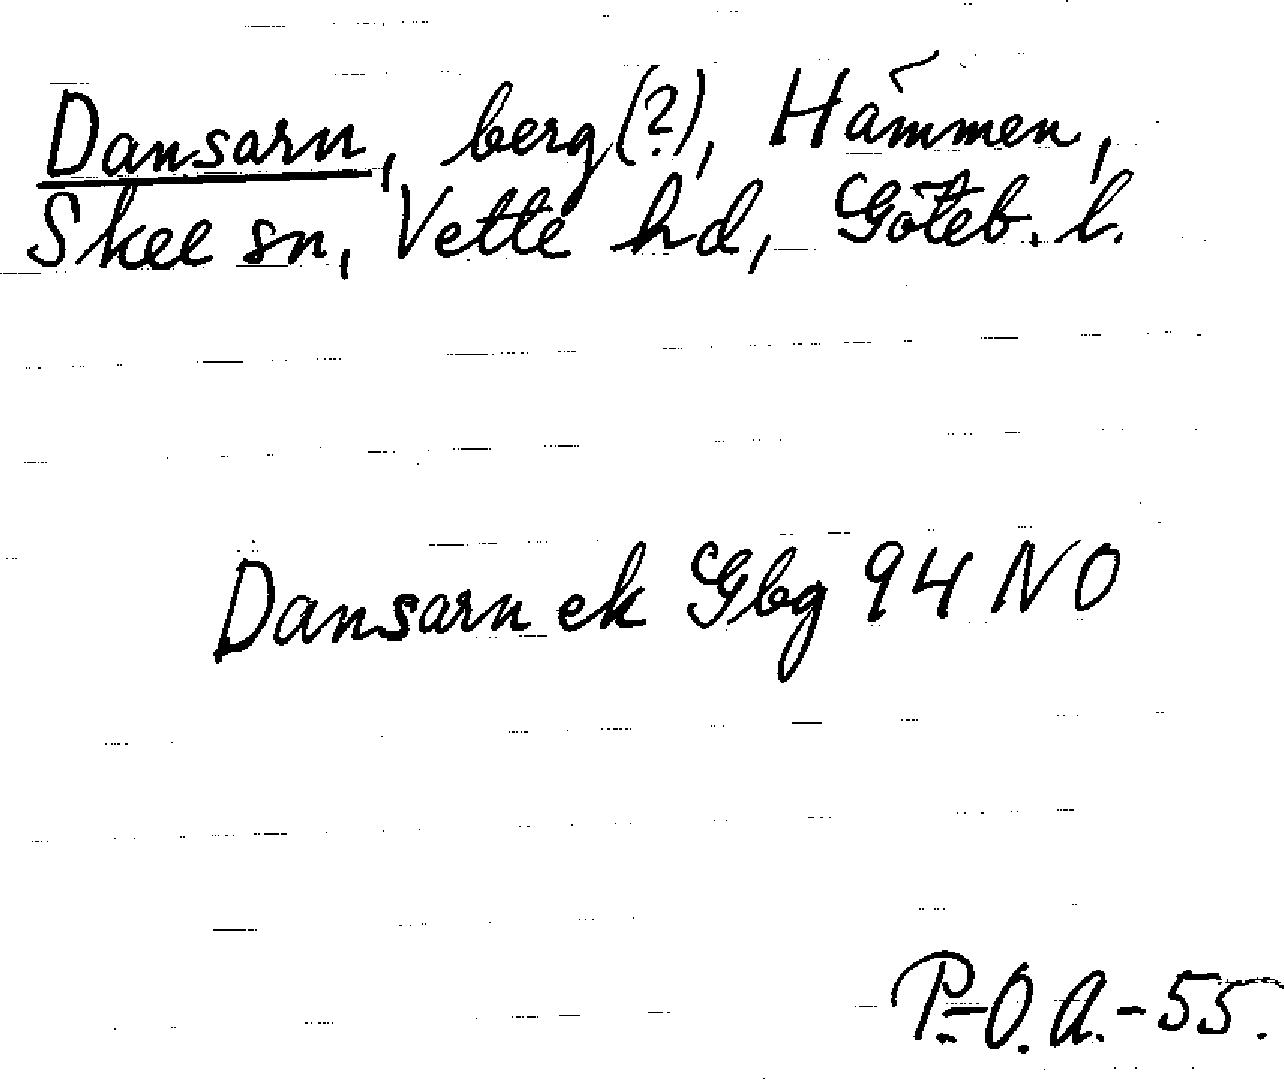 Dansarn, berg(?), Hämmen,
Skee sn, Vette hd, Göteb. l.
Dansarn ek Gbg 94 NO
P.-O. A. - 55.